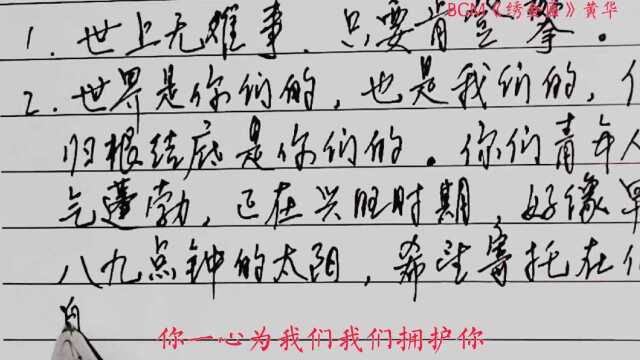 BGM《绣金匾》黄华
1. 世上无难事、只要肯登攀。
2. 世界是你们的，也是我们的，
归根结底是你们的。你们青年人
气蓬勃，正在兴旺时期，好像早
八九点钟的太阳，希望寄托在
你一心为我们我们拥护你